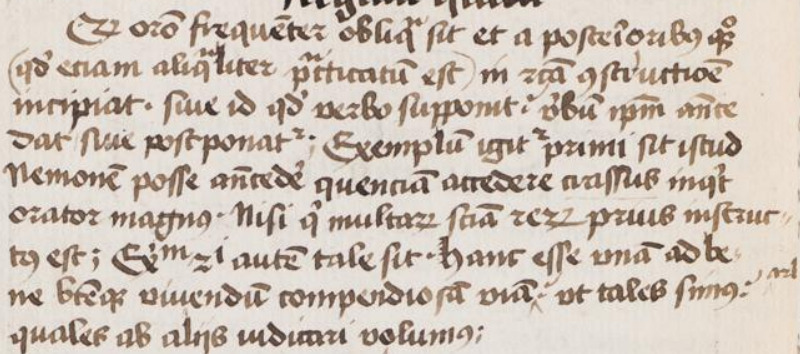 Et orō frequēter obliq̄ sit et a posterioribꝰ qꝫ
(qd̄ eciam aliqͣliter pͣcticatū est) in rc̄a ꝯstructiōe
incipiat. siue id qd̄ verbo supponit: v̄bū ip̄m an̄ce
dat siue postponatᷣ; Exemplū igitᷣ primi sit istud
Neminē posse an̄cedē quenciā accedere crassus inqͥt
orator magnꝰ. Nisi qͥ multaꝝ sciā reꝝ prius instruc-
tꝰ est; Exᵐ 2ⁱ autē tale sit. hanc esse vnā ad be-
ne btēqꝫ viuendū compendiosā viā: vt tales simꝰ:
quales ab alijs iudicari volumꝰ;